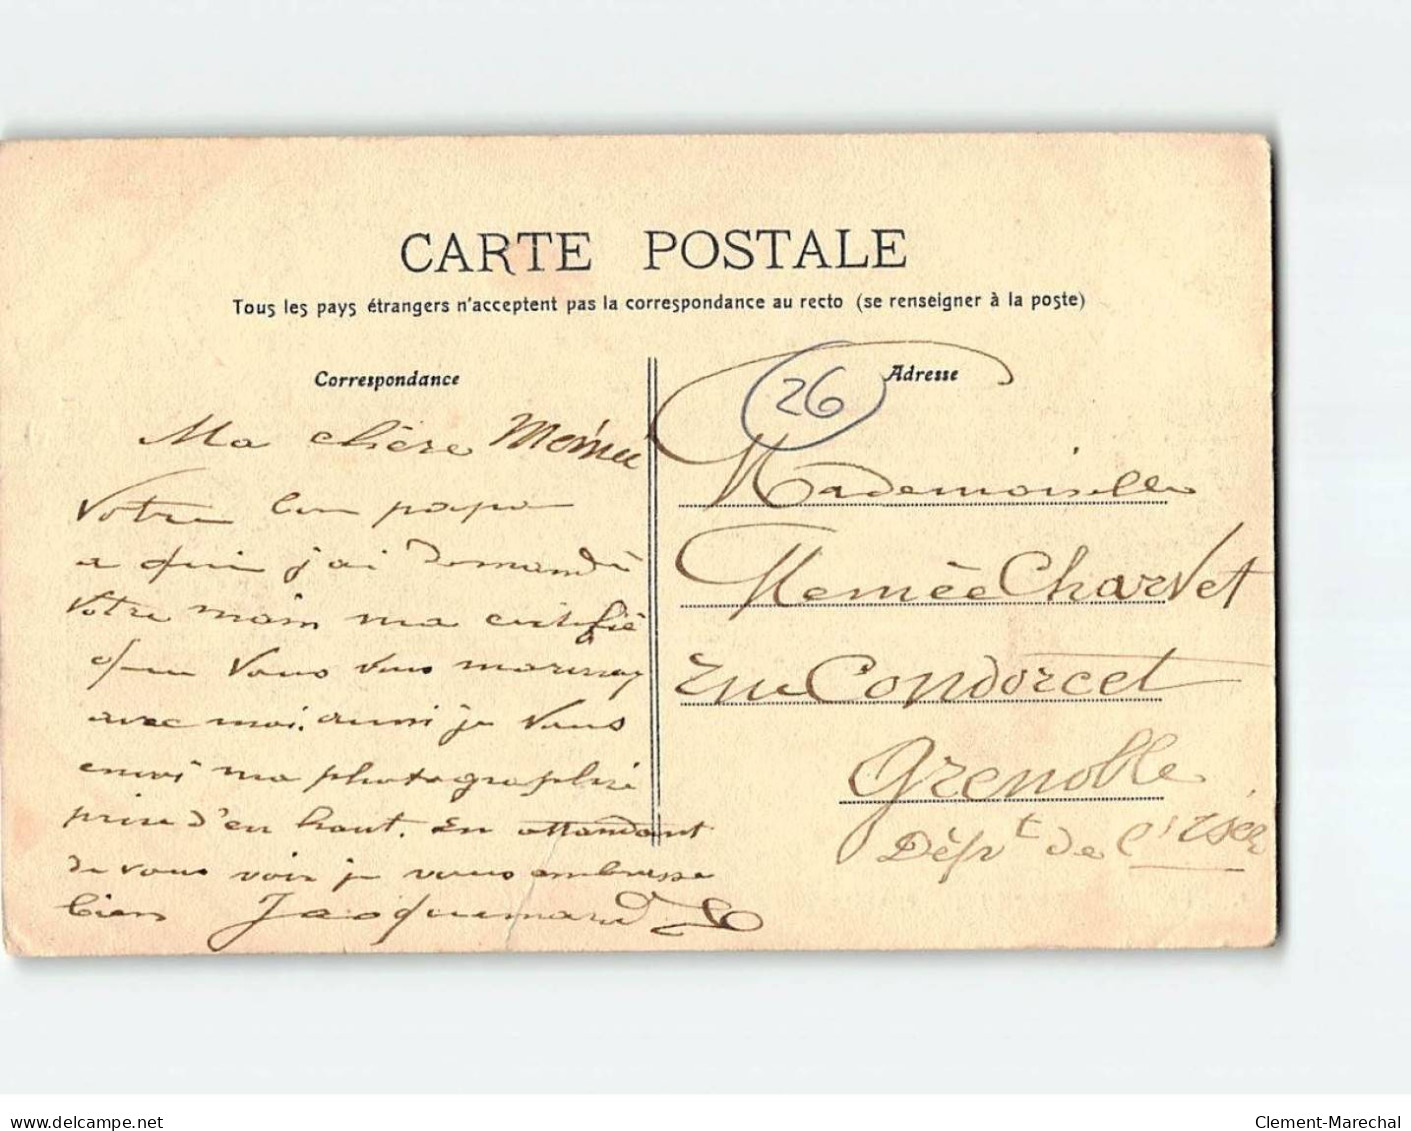 CARTE POSTALE
Tous les pays étrangers n'acceptent pas la correspondance au recto (se renseigner à la poste)
Correspondance
Ma chère Mémée
Votre papa
a qui j'ai demandé
votre main ma certifié
que vous vous
avec moi. aussi je vous
envoi ma photographie
prise d'en haut. En attendant
de vous voir je vous embrasse
bien Jacquemard
26
Adresse
Mademoiselle
Memée Charvet
Rue Condorcet
Grenoble
Dépt de l'Isère
www.delcampe.net
Clement-Marechal